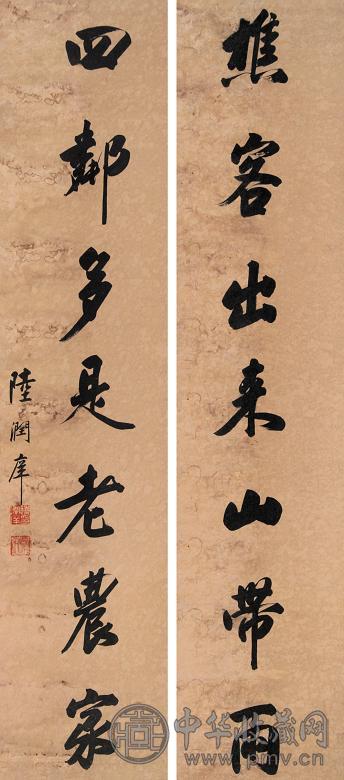 樵客出来山带雨
四鄰多是老農家
陸潤庠
中华收藏网
www.pmv.cn